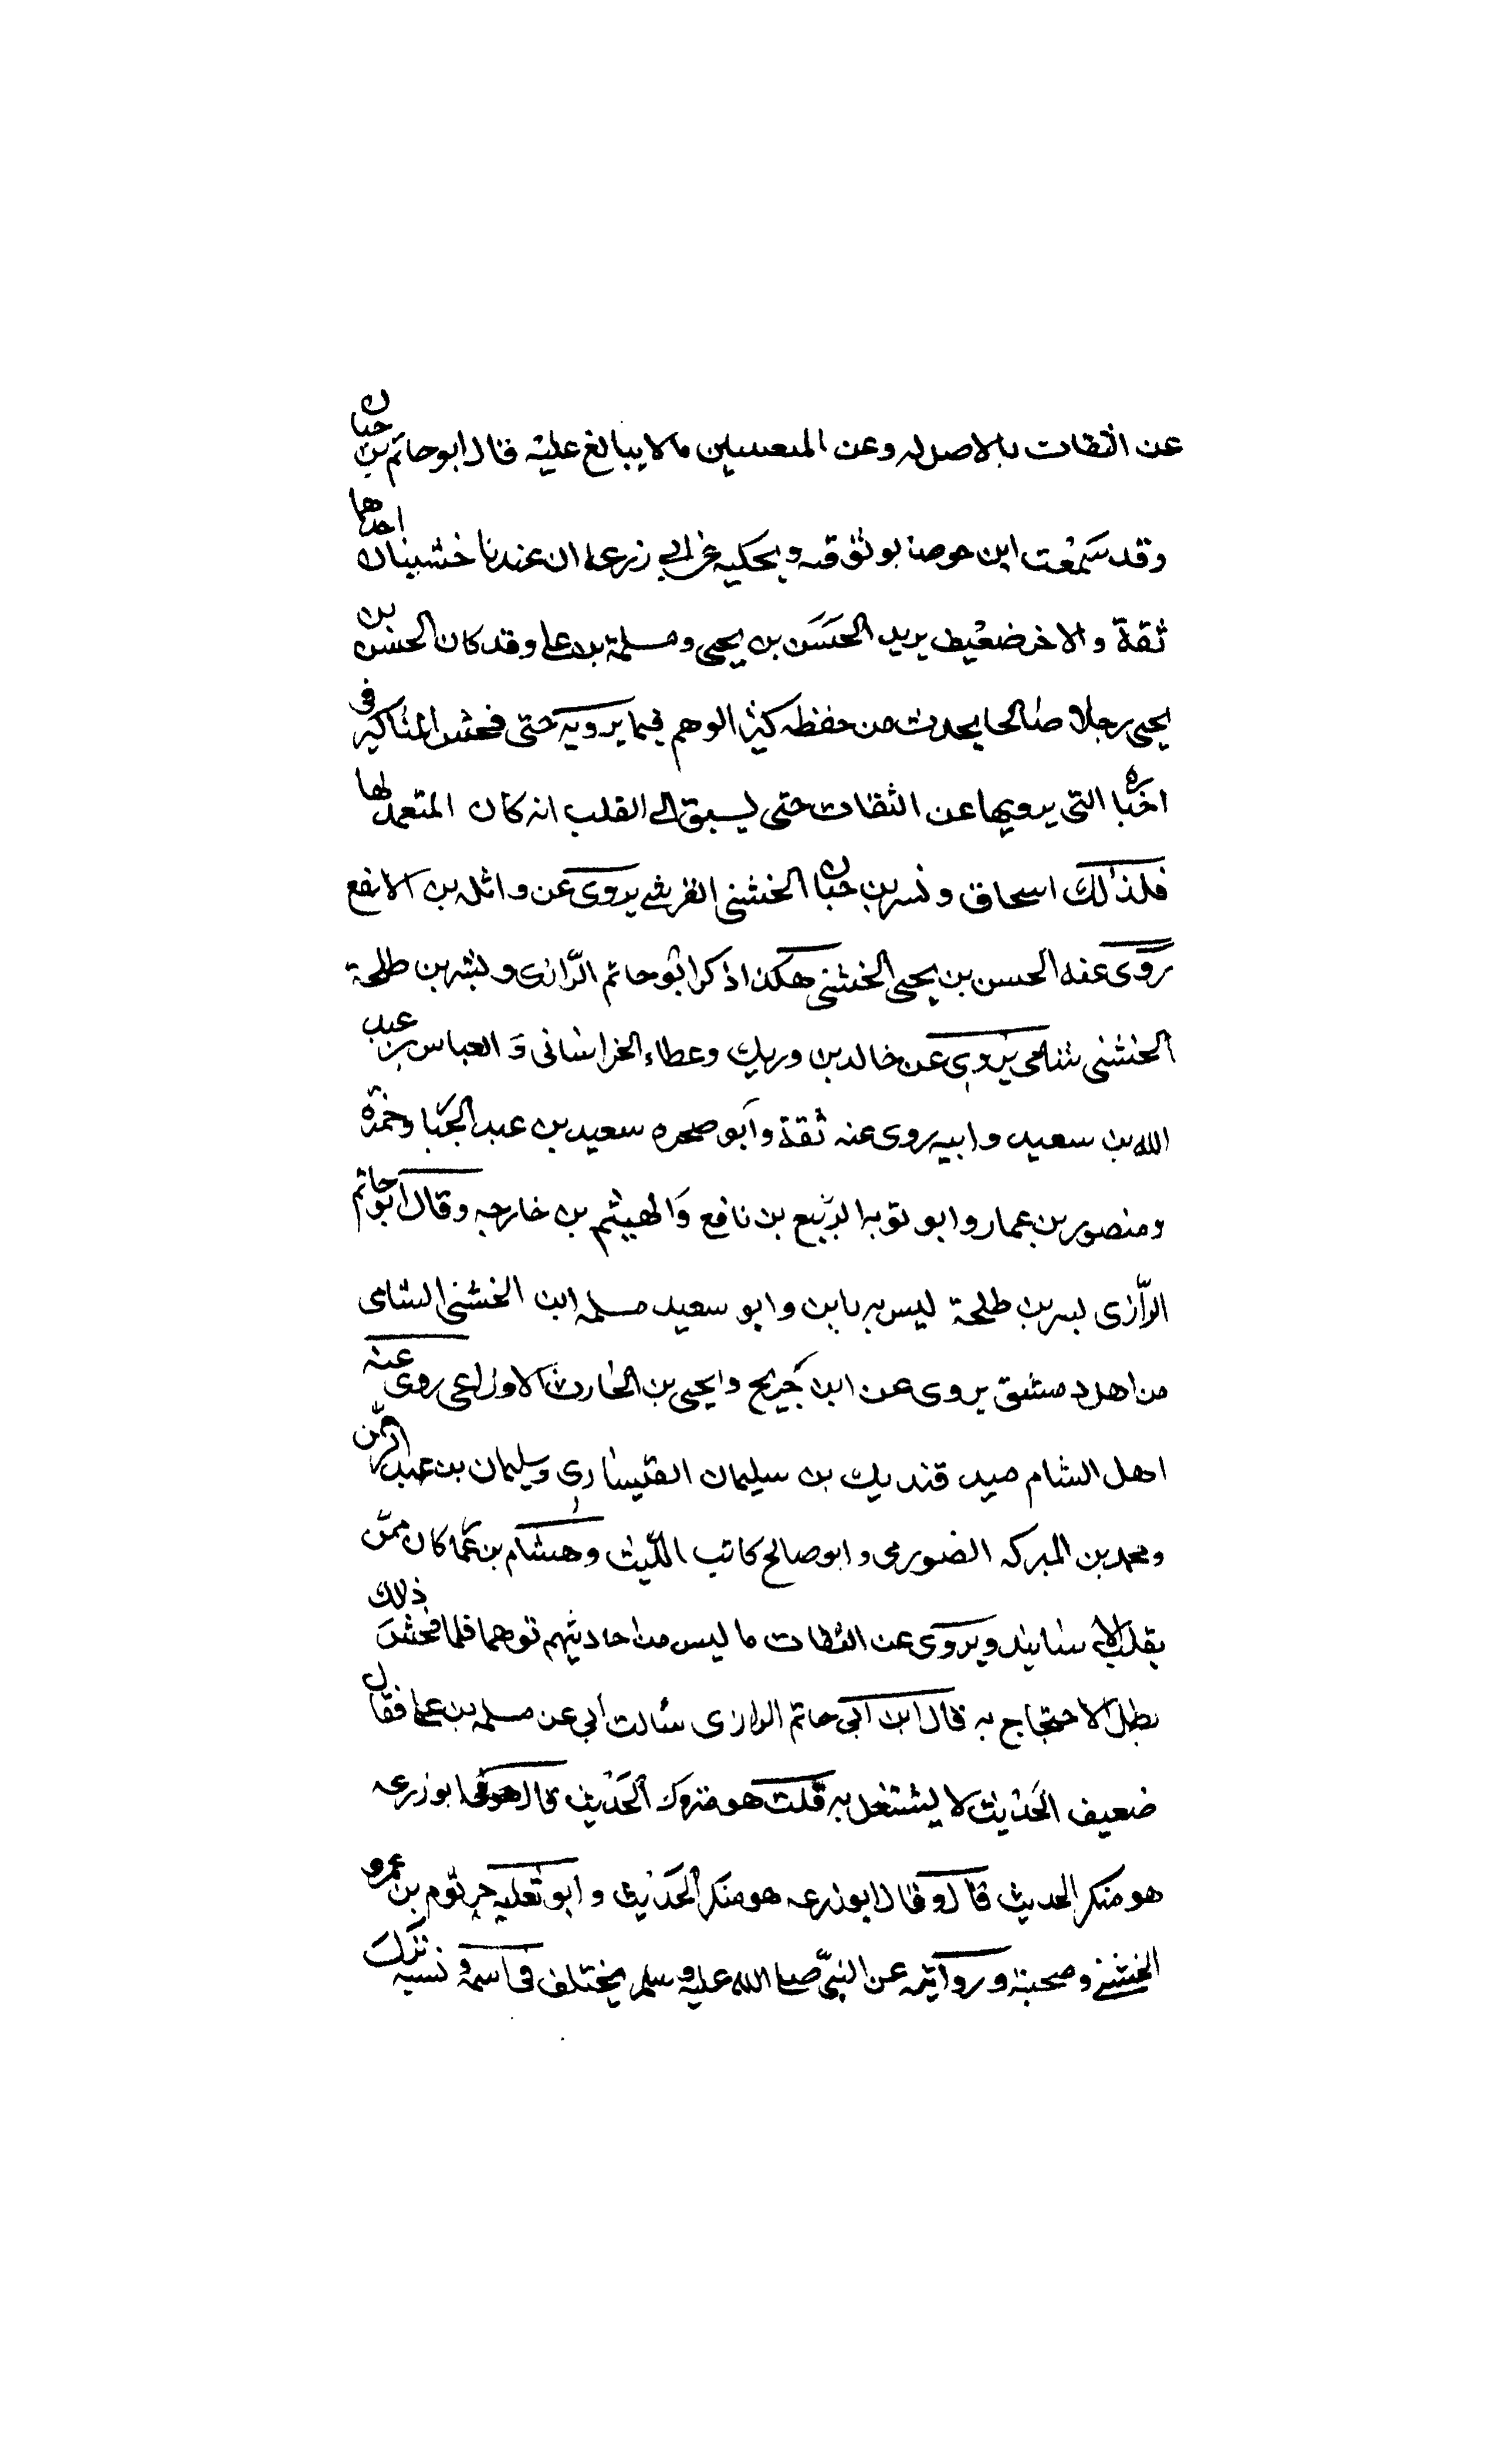 عن الثقات بالاصل له وعن المتعسين مالا يبالغ عليه قال ابو حاتم بن حبان
وقد سمعت ابن حوصا بوثوقه ويحكيه عن ابي زرعة ان عندنا خشينان احدهما
ثقة والاخر ضعيف يريد الحسن بن يحيى ومسلمة بن على وقد كان الحسن بن
يحيى رجلا صالحا يحدث من حفظه كثير الوهم فيما يرويه حتى فحش المناكير فى
اخباره التى يرويها عن الثقات حتى يسبق الى القلب انه كان المتعمد لها
فلذالك اسحاق و نسر بن حبان الخشنى القرشى يروى عن واثله بن الاسفع
روى عنه الحسن بن يحيى الخشنى هكذا ذكر ابو حاتم الرازى و بشر بن طلحة
الخشنى شامى يروى عن خالد بن دريك وعطاء الخراسانى و العباس بن عبد
الله بن سعيد وابيه روى عنه ثقة وابو صحره سعيد بن عبد الجبا وحمزة
ومنصور بن عمار وابو توبه الربيع بن نافع والهيثم بن خارجه وقال ابو حاتم
الرازى بسر بن طلحة ليس به باين وابو سعيد مسلمه ابن الخشنى الشامى
من اهل دمشق يروى عن ابن جريج ويحيى بن الحارث الاوزاعى روى عنه
اهل الشام صيد قنديك بن سليمان القيسارى وسليمان بن عبد الرحمن
ومحمد بن المبركه الضورمى وابو صالح كاتب الليث وهشام بن عما كان ممن
يقلب الاسانيد ويروى عن الثقات ما ليس من احاديثهم توهما فلما فحش ذلك
بطل الاحتجاج به قال ابن ابى حاتم الرازى سالت ابى عن مسلمه بن على فقال
ضعيف الحديث لا يشتغل به قلت هو متروك الحديث قال هو فى ابو زرعه
هو منكر الحديث قال وقال ابو زرعه هو منكر الحديث وابو ثعلبه جرثوم بن عمرو
الخشنى وصحبة وروايته عن النبى صلى الله عليه وسلم يختلف فى اسمه ونسبه نزك